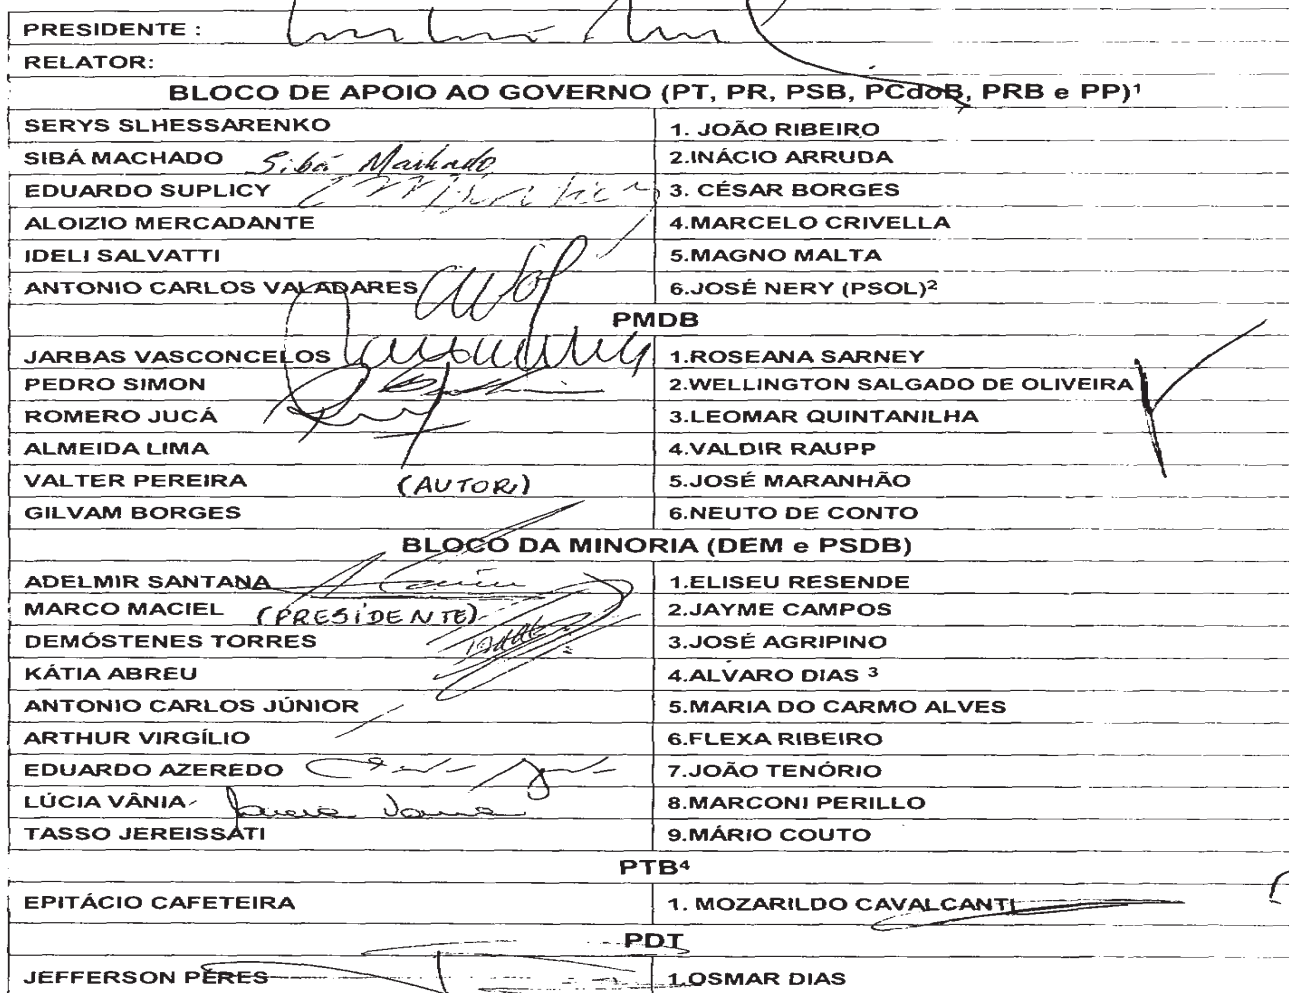 PRESIDENTE :
RELATOR:
BLOCO DE APOIO AO GOVERNO (PT, PR, PSB, PCdoB, PRB e PP)¹
SERYS SLHESSARENKO 1. JOÃO RIBEIRO
SIBÁ MACHADO Sibá Machado 2.INÁCIO ARRUDA
EDUARDO SUPLICY 3. CÉSAR BORGES
ALOIZIO MERCADANTE 4.MARCELO CRIVELLA
IDELI SALVATTI 5.MAGNO MALTA
ANTONIO CARLOS VALADARES 6.JOSÉ NERY (PSOL)²
PMDB
JARBAS VASCONCELOS 1.ROSEANA SARNEY
PEDRO SIMON 2.WELLINGTON SALGADO DE OLIVEIRA
ROMERO JUCÁ 3.LEOMAR QUINTANILHA
ALMEIDA LIMA 4.VALDIR RAUPP
VALTER PEREIRA (AUTOR) 5.JOSÉ MARANHÃO
GILVAM BORGES 6.NEUTO DE CONTO
BLOCO DA MINORIA (DEM e PSDB)
ADELMIR SANTANA 1.ELISEU RESENDE
MARCO MACIEL (PRESIDENTE) 2.JAYME CAMPOS
DEMÓSTENES TORRES 3.JOSÉ AGRIPINO
KÁTIA ABREU 4.ALVARO DIAS ³
ANTONIO CARLOS JÚNIOR 5.MARIA DO CARMO ALVES
ARTHUR VIRGÍLIO 6.FLEXA RIBEIRO
EDUARDO AZEREDO 7.JOÃO TENÓRIO
LÚCIA VÂNIA 8.MARCONI PERILLO
TASSO JEREISSATI 9.MÁRIO COUTO
PTB⁴
EPITÁCIO CAFETEIRA 1. MOZARILDO CAVALCANTI
PDT
JEFFERSON PÉRES 1.OSMAR DIAS